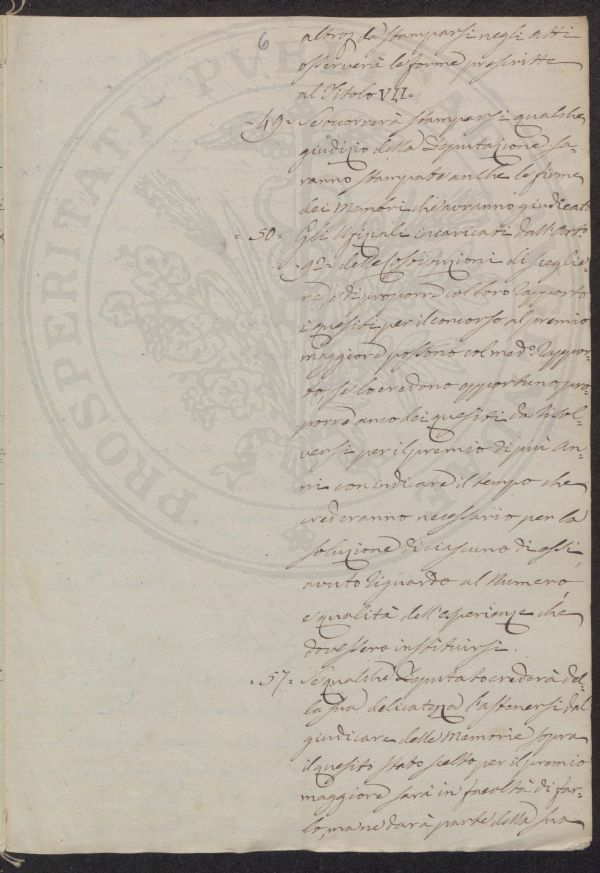 6
altroz da stamparsi negli Atti
osserverà le forme prescritte
al Titolo VII.
- 49 - Se occorrerà stamparsi qualche
giudizio della Deputazione sa-
ranno stampate anche le firme
dei Membri che avranno giudicati
= 50 = Gli Ufiziali incaricati dall'Arto
92 delle Costituzioni di sceglie-
re, e di proporre col loro Rapporto
i quesiti per il concorso al premio
maggiore possono col medo. Rappor-
to, se lo credono opportuno, pro-
porre anco dei quesiti da risol-
versi per il premio di più An-
ni con indicare il tempo che
crederanno necessario per la
soluzione di ciascuno di essi,
avuto riguardo al Numero,
e qualità dell'esperienze che
dovessero instituirsi.
= 51 = Se qualche Deputato crederà del-
la sua delicatezza l'astenersi dal
giudicare delle Memorie sopra
il quesito stato scelto per il premio
maggiore sarà in facoltà di far-
lo, ma ne darà parte della sua
PROSPERITATI PUBLICAE